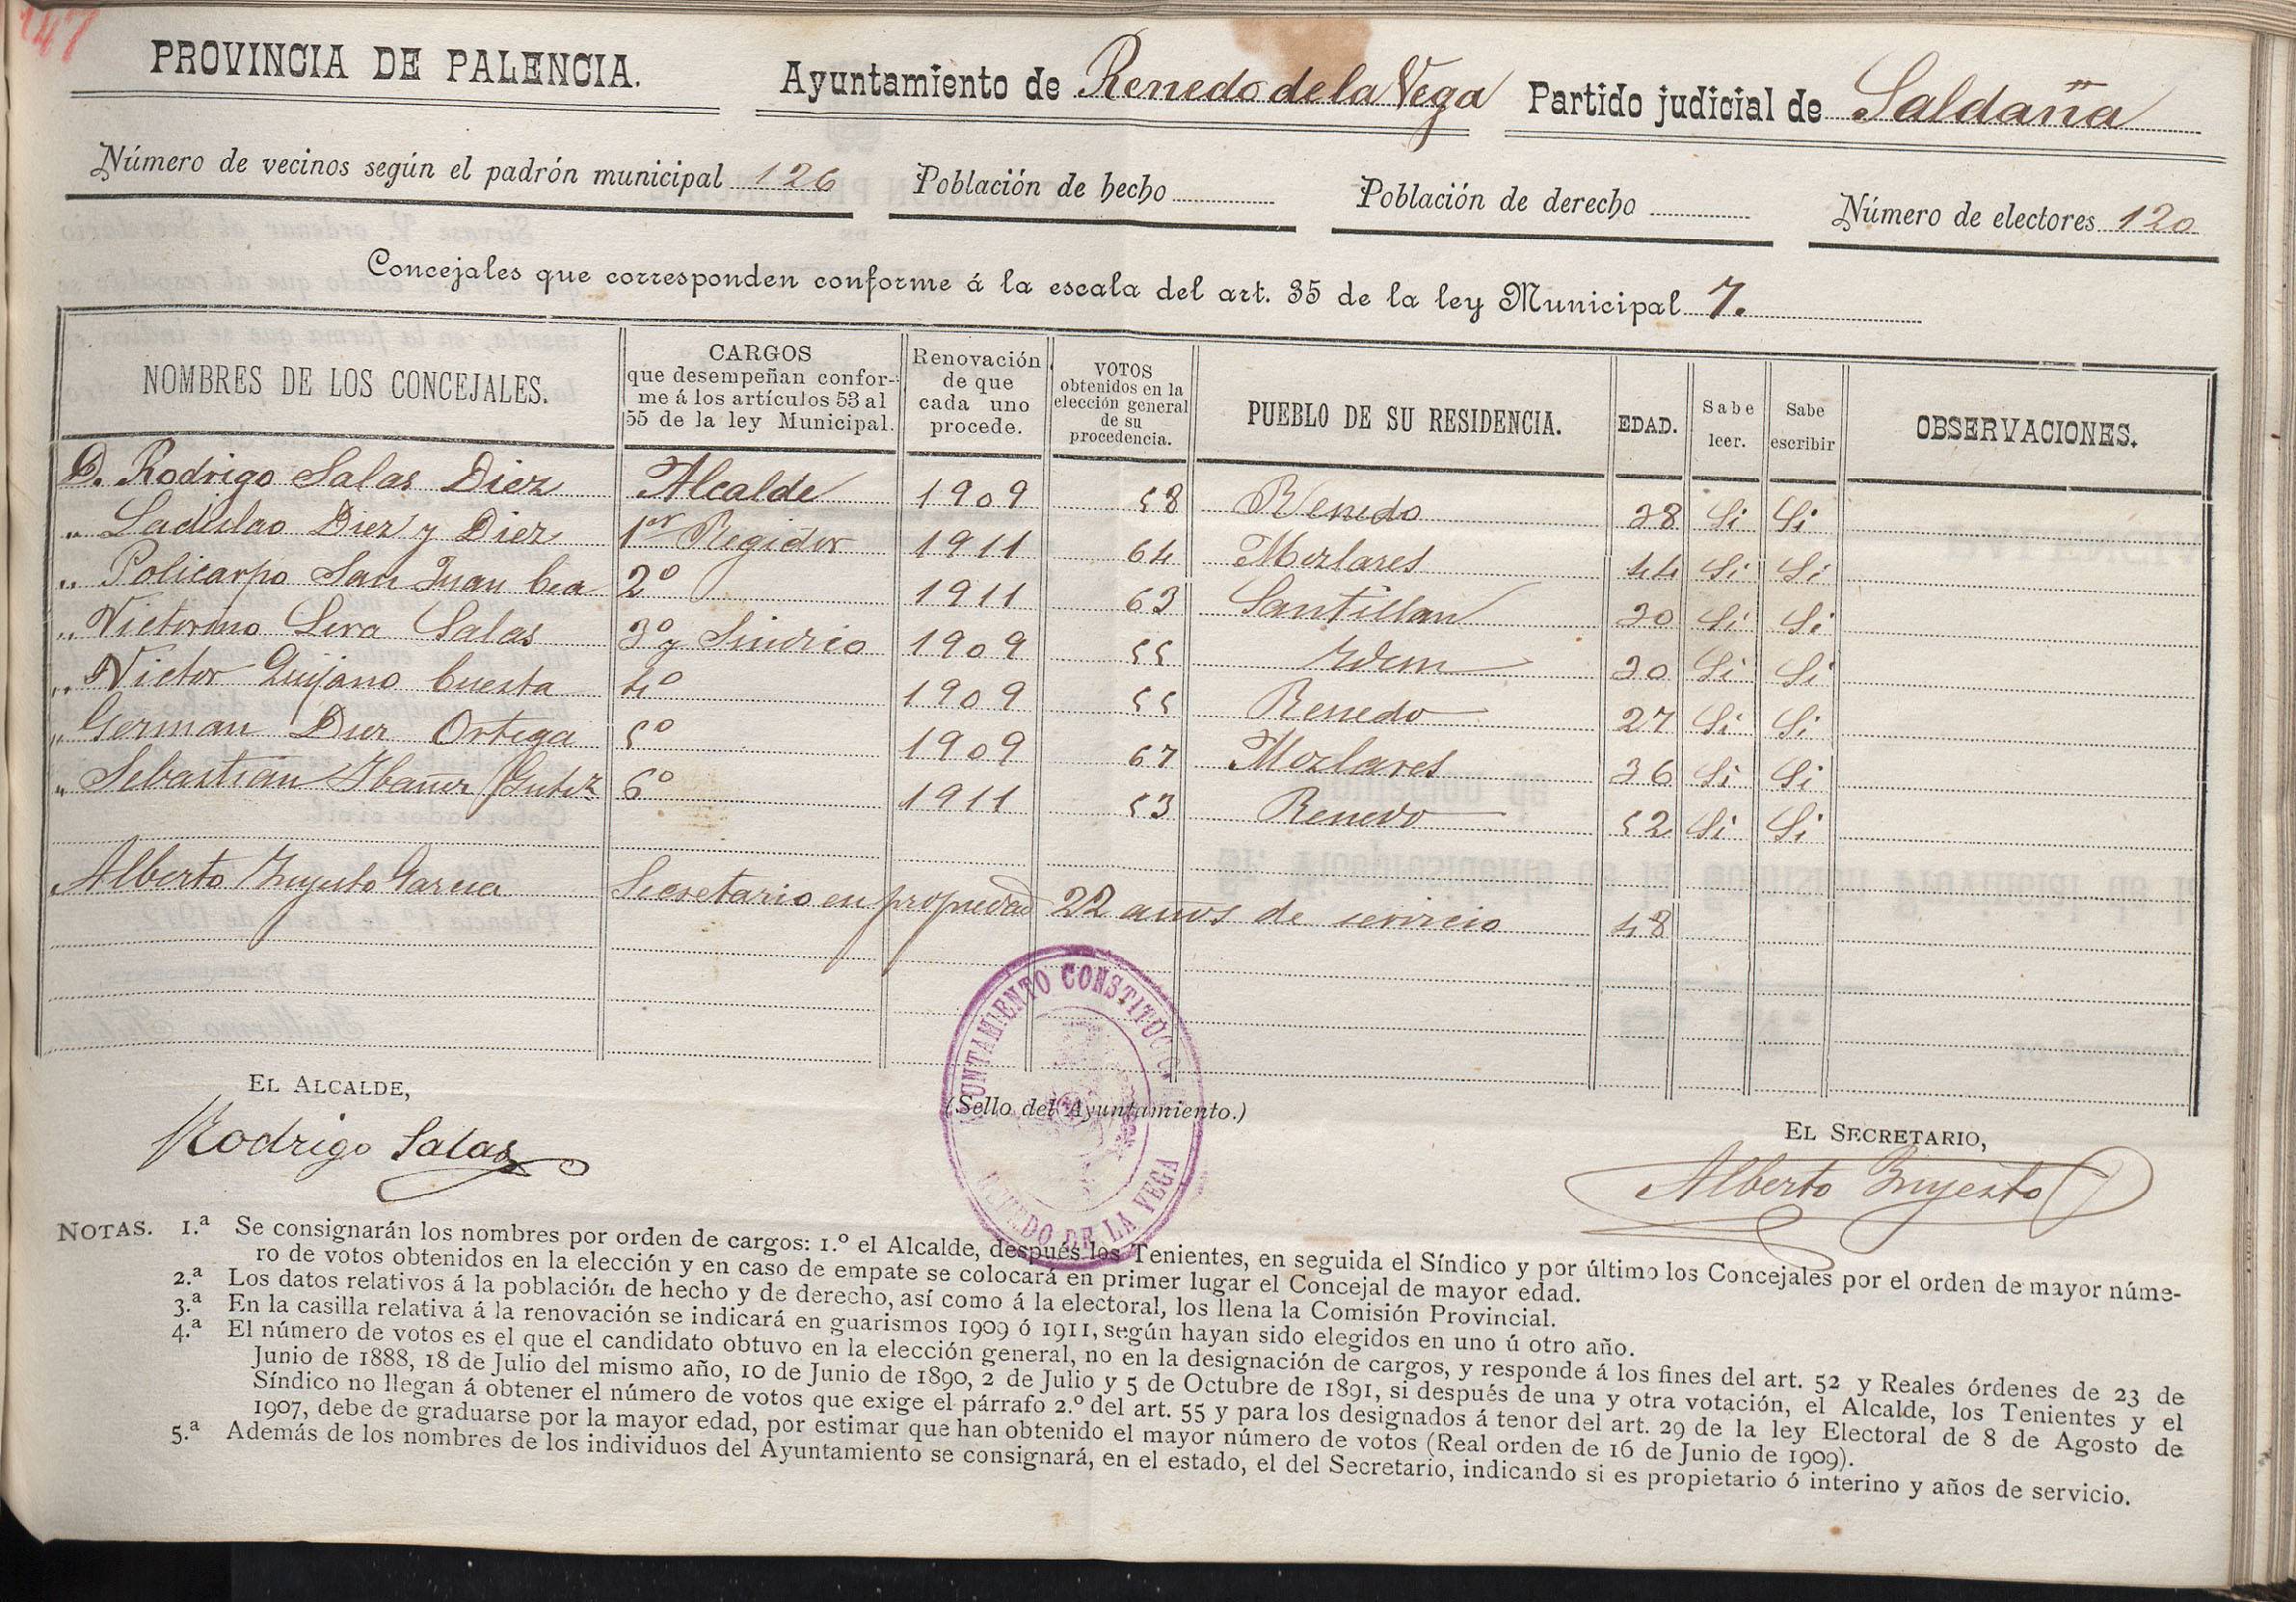 147
PROVINCIA DE PALENCIA. Ayuntamiento de Renedo de la Vega Partido judicial de Saldaña
Número de vecinos según el padrón municipal 126 Población de hecho Población de derecho Número de electores 120
Concejales que corresponden conforme á la escala del art. 35 de la ley Municipal 7.
NOMBRES DE LOS CONCEJALES. CARGOS que desempeñan conforme á los artículos 53 al 55 de la ley Municipal. Renovación de que cada uno procede. VOTOS obtenidos en la elección general de su procedencia. PUEBLO DE SU RESIDENCIA. EDAD. Sabe leer. Sabe escribir OBSERVACIONES.
D. Rodrigo Salas Diez Alcalde 1909 58 Renedo 38 Si Si
" Ladislao Diez y Diez 1er Regidor 1911 64 Mozlares 44 Si Si
" Policarpo San Juan Cea 2º 1911 63 Santillan 30 Si Si
" Victorino Lera Salas 3º y Sindico 1909 55 Idem 30 Si Si
" Victor Quijano Cuesta 4º 1909 55 Renedo 27 Si Si
" German Diez Ortega 5º 1909 67 Mozlares 36 Si Si
" Sebastian Ibañez Gutiz 6º 1911 53 Renedo 52 Si Si
Alberto Garcia Secretario en propiedad 22 años de servicio 48
AYUNTAMIENTO CONSTITUC
RENEDO DE LA VEGA
EL ALCALDE,
(Sello del Ayuntamiento.)
EL SECRETARIO,
Rodrigo Salas
Alberto
NOTAS. 1.ª Se consignarán los nombres por orden de cargos: 1.º el Alcalde, después los Tenientes, en seguida el Síndico y por último los Concejales por el orden de mayor núme-
ro de votos obtenidos en la elección y en caso de empate se colocará en primer lugar el Concejal de mayor edad.
2.ª Los datos relativos á la población de hecho y de derecho, así como á la electoral, los llena la Comisión Provincial.
3.ª En la casilla relativa á la renovación se indicará en guarismos 1909 ó 1911, según hayan sido elegidos en uno ú otro año.
4.ª El número de votos es el que el candidato obtuvo en la elección general, no en la designación de cargos, y responde á los fines del art. 52 y Reales órdenes de 23 de
Junio de 1888, 18 de Julio del mismo año, 10 de Junio de 1890, 2 de Julio y 5 de Octubre de 1891, si después de una y otra votación, el Alcalde, los Tenientes y el
Síndico no llegan á obtener el número de votos que exige el párrafo 2.º del art. 55 y para los designados á tenor del art. 29 de la ley Electoral de 8 de Agosto de
1907, debe de graduarse por la mayor edad, por estimar que han obtenido el mayor número de votos (Real orden de 16 de Junio de 1909).
5.ª Además de los nombres de los individuos del Ayuntamiento se consignará, en el estado, el del Secretario, indicando si es propietario ó interino y años de servicio.